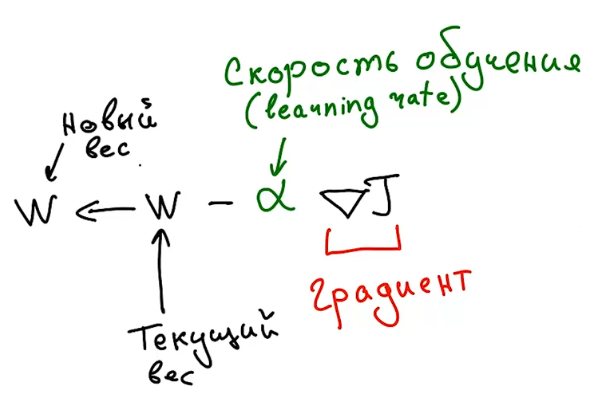 Скорость обучения
(learning rate)
Новый
вес
W ← W − α ∇J
градиент
Текущий
вес